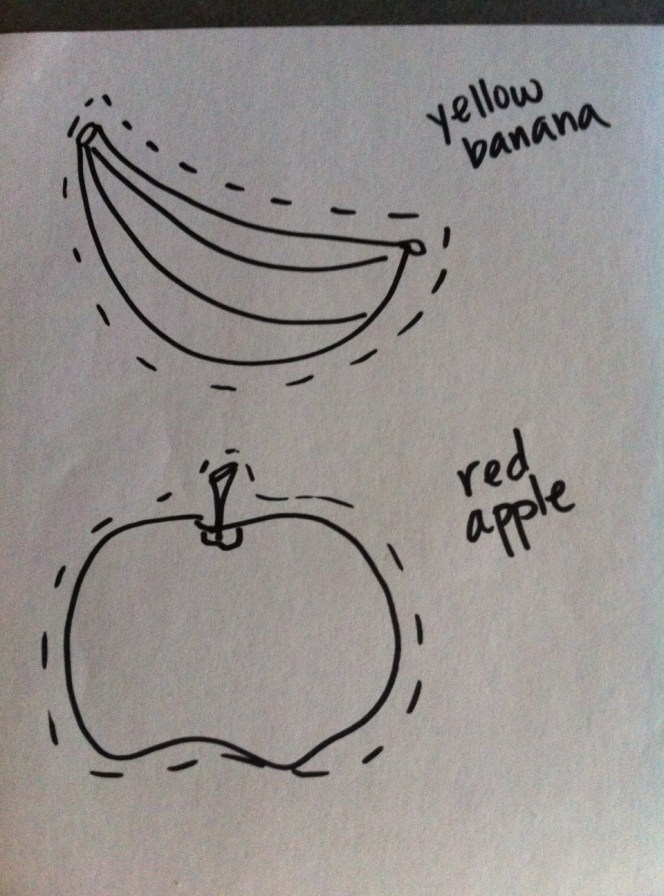 yellow
banana
red
apple